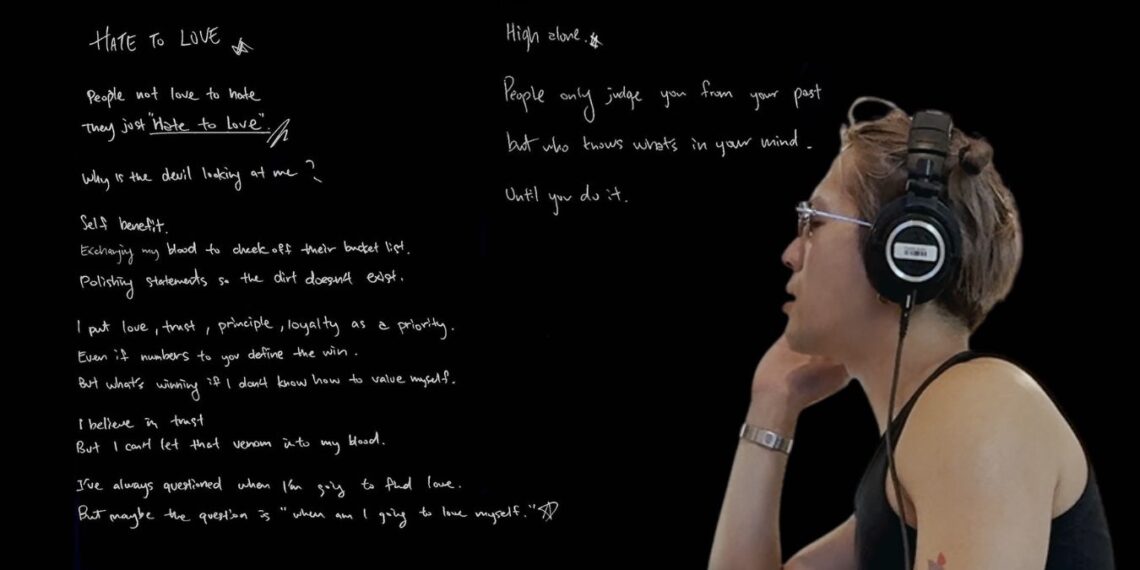 HATE TO LOVE
People not love to hate
They just "Hate to Love".
Why is the devil looking at me?
Self benefit.
Exchanging my blood to check off their bucket list.
Polishing statements so the dirt doesn't exist.
I put love, trust, principle, loyalty as a priority.
Even if numbers to you define the win.
But what's winning if I don't know how to value myself.
I believe in trust
But I can't let that venom into my blood.
I've always questioned when I'm going to find love.
But maybe the question is "when am I going to love myself."
High alone.
People only judge you from your past
but who knows what's in your mind.
Until you do it.